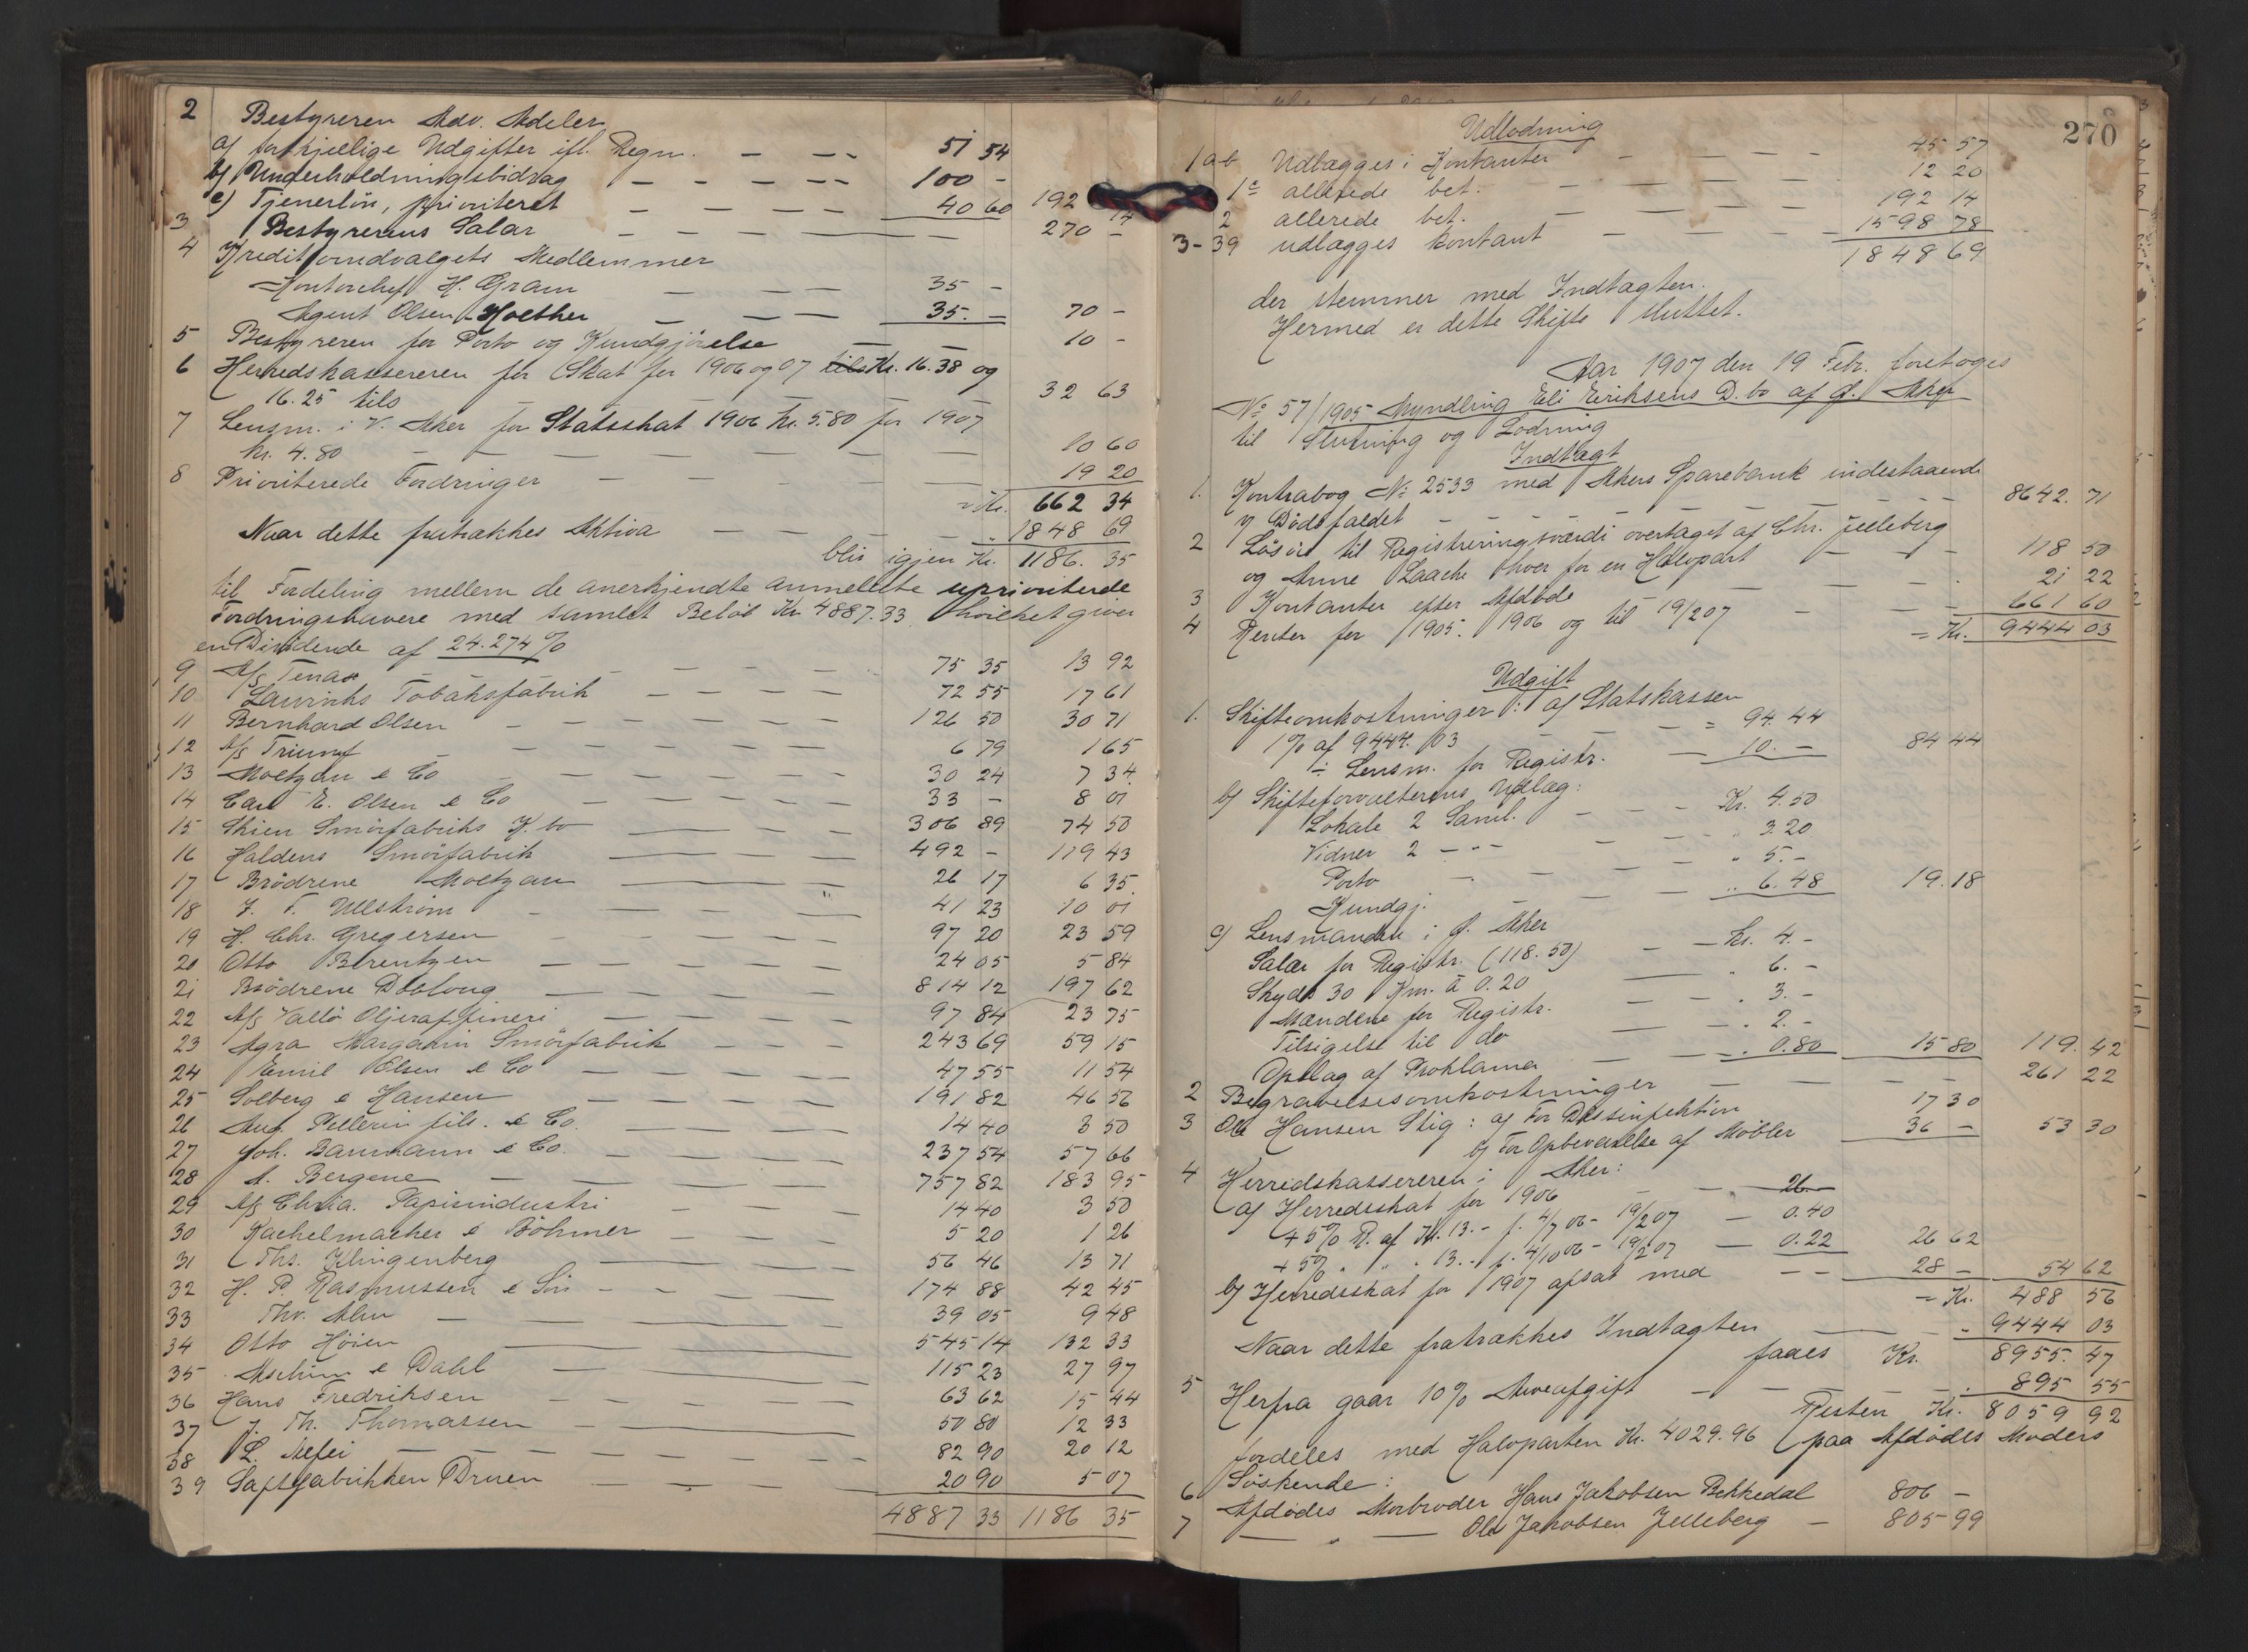 2 Bestyreren Adv. Adeler
a) forskjellige Udgifter ifl. Regn. — — — 51 54
b) Underholdningsbidrag — — — — 100 -
c) Tjenerløn, prioriteret — — — — 40 60 192 14
3 Bestyrerens Salar — — — 270 -
4 Kreditorudvalgets Medlemmer
Kontorchef H. Gram — — — 35 -
Agent Olsen-Hoelher — — — 35. - 70 -
5 Bestyreren for Porto og Kundgjörelse — — 10 -
6 Herredskassereren for Skat for 1906 og 07 tils Kr. 16.38 og
16.25 tils — — — 32 63
7 Lensm. i V. Aker for Statsskat 1906 Kr. 5.80 for 1907
Kr. 4.80 — — — — — — 10 60
8 Prioriterede Fordringer — — — — 19 20
= Kr. 662 34
Naar dette fratrækkes Aktiva — — — " 1848 69
blir igjen Kr. 1186. 35
til Fordeling mellem de anerkjendte anmeldte uprioriterede
Fordringshavere med samlet Beløb Kr 4887.33. hvilket giver
en Dividende af 24.274 %
9 A/S Tenax — — — — 75 35 13 92
10 Laurichs Tobaksfabrik — — — — 72 55 17 61
11 Bernhard Olsen — — — — 126 50 30 71
12 A/S Triumf — — — — 6 79 1 65
13 Moetzau & Co — — — — 30 24 7 34
14 Carl E. Olsen & Co — — — — 33 - 8 01
15 Skien Smörfabriks K. bo — — — 306 89 74 50
16 Haldens Smörfabrik — — — 492 - 119 43
17 Brödrene Moetzau — — — 26 17 6 35
18 J. F. Ullström — — — 41 23 10 01
19 H. Chr. Gregersen — — — — 97 20 23 59
20 Otto Berentzen — — — — 24 05 5 84
21 Brödrene Dobloug — — — 814 12 197 62
22 A/S Vallö Oljeraffineri — — — 97 84 23 75
23 Agra Margarin Smörfabrik — — — 243 69 59 15
24 Emil Olsen & Co — — — — 47 55 11 54
25 Solberg & Hansen — — — — 191 82 46 56
26 Aug. Pellerin fils. & Co. — — — 14 40 3 50
27 Joh. Baumann & Co. — — — — 237 54 57 66
28 A. Bergene — — — — 757 82 183 95
29 A/S Chria. Papirindustri — — — 14 40 3 50
30 Kachelmacher & Böhmer — — — 5 20 1 26
31 Ths. Klingenberg — — — — 56 46 13 71
32 H. P. Rasmussen & Sön — — — — 174 88 42 45
33 Thv. Alm — — — — 39 05 9 48
34 Otto Höien — — — — 545 14 132 33
35 Aschim & Dahl — — — — 115 23 27 97
36 Hans Fredriksen — — — — 63 62 15 44
37 J. Th. Thomassen — — — 50 80 12 33
38 L. — — — — 82 90 20 12
39 Saftfabrikken Druen — — — 20 90 5 07
4887 33 1186 35
270
Udlodning
1 a-b Udlægges i Kontanter — — — — 45 57
1c allerede bet. — — — — 12 20
2 allerede bet. — — — — 192 14
3-39 udlægges kontant — — — 1598 78
1848 69
der stemmer med Indtægten.
Hermed er dette Skifte sluttet.
Aar 1907 den 19 Febr. foretoges
No 57/1905 Myndling Eli Eriksens D. bo af Ø. Aker
til Slutning og Lodning
Indtægt
1. Kontrabog No 2533 med Akers Sparebank indestaaende
v/ Dödsfaldet — — — — 8642. 71
2 Lösöre til Registreringsværdi overtaget af Chr. Jelleberg
og Anne Laache hver for en Halvpart — — — 118 50
3 Kontanter efter Afdøde — — — — 21 22
4 Renter for 1905. 1906 og til 19/2 07 — — — 661 60
= Kr. 9444 03
Udgift
1. Skifteomkostninger: a) Statskassen
1 % af 9444. 03 — — = 94. 44
÷ Lensm. for Registr. — 10. - 84 44
b) Skifteforvalterens Udlæg:
Lokale 2 Saml. — — — Kr. 4.50
Vidner 2 — " — — — — " 3.20
Porto — — — — " 5. -
Kundgj. — — — — " 6.48 19.18
c) Lensmanden i Ø. Aker
Salær for Registr. (118.50) — — Kr. 4. -
Skyds 30 Km. à 0.20 — " 6. -
Mændene for Registr. — — " 3. -
Tilsigelse til do — — " 2. -
Opslag af Proklama — — — " 0.80 15 80 119. 42
2 Begravelsesomkostninger — — — — 261 22
3 Ole Hansen Stig: a) For Desinfektion 17 30
b) For Opbevarelse af Møbler 36 - 53 30
4 Herredskassereren i Aker:
a) Herredsskat for 1906 — — 26. —
+ 5 % R. af Kr. 13. - f. 4/7 06 - 19/2 07 — 0.40
+ 5 % " " " 13. - f. 4/10 06 - 19/2 07 — 0.22 26 62
b) Herredsskat for 1907 afsat med — — 28 - 54 62
= Kr. 488 56
Naar dette fratrækkes Indtægten — — " 9444 03
faaes Kr. 8955. 47
5 Herfra gaar 10 % Arveafgift — — — " 895 55
Resten Kr. 8059 92
fordeles med Halvparten Kr. 4029.96 paa Afdødes Moders
Søskende:
6 Afdødes Morbroder Hans Jakobsen Bekkedal 806 -
7 — " — Ole Jakobsen Jelleberg — 805 99